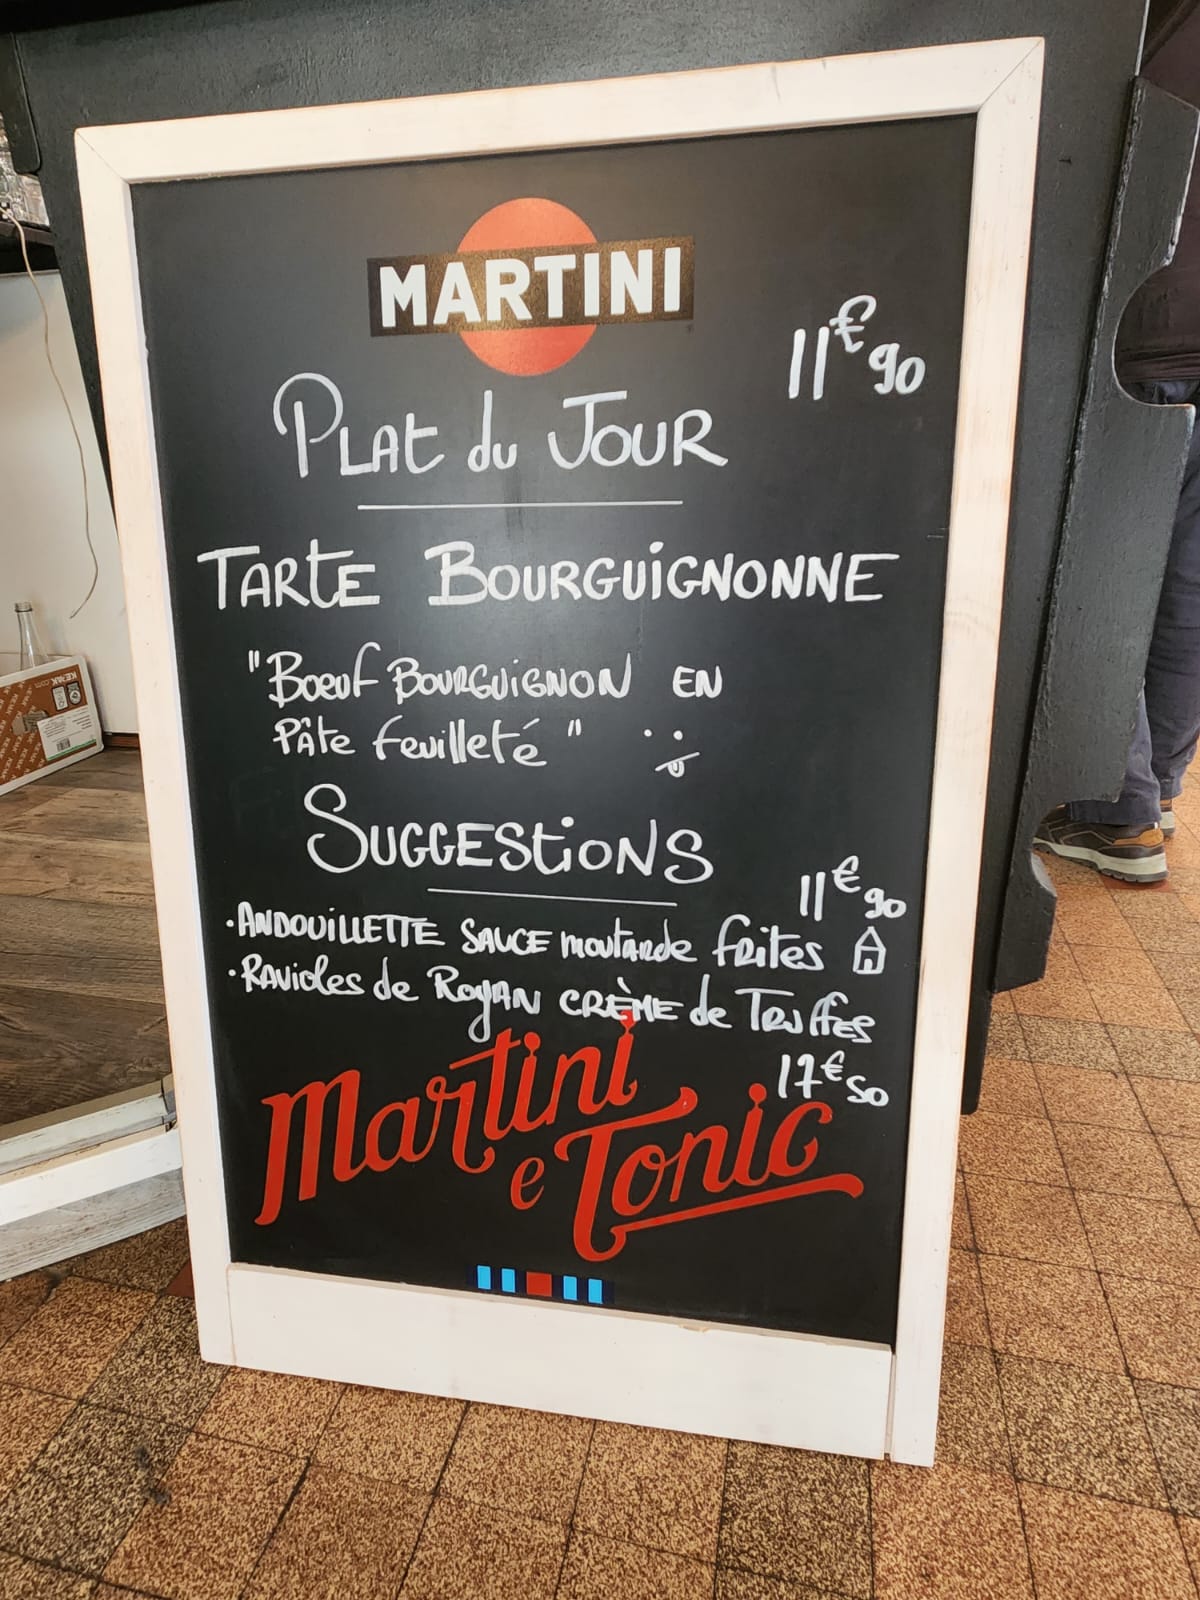 MARTINI
11€90
PLAt du JOUR
TARtE BOURGUiGNONNE
"Bœuf BOURGUiGNON EN
PÂte feuilleté"
SUGGEStiONS
11€90
·ANDOUiLLETTE SAUCE moutarde frites
·RAVioles de ROyAN CRÈME de Truffes
17€50
Martini
e Tonic